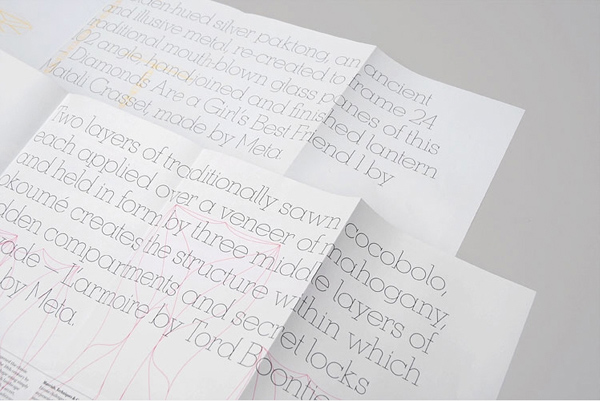 den-hued silver paktong, an ancient
and illusive metal, re-created to frame 24
traditional mouth-blown glass panes of this
102 angle, hand-joined and finished lantern
– Diamonds Are a Girl's Best Friend I by
Matali Crasset, made by Meta.
Two layers of traditionally sawn cocobolo,
each applied over a veneer of mahogany,
and held in form by three middle layers of
okoumé creates the structure within which
dden compartments and secret locks
ade – L'armoire by Tord Boontje
by Meta.